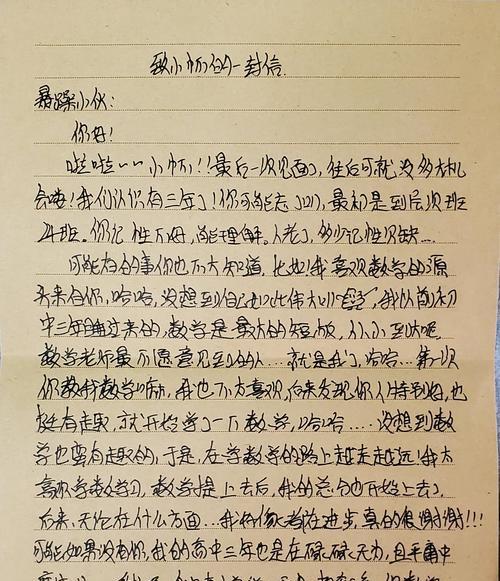 致小帅的一封信.
暴躁小伙:
你好!
啦啦~~小帅!!最后一次见面了,往后可就没多大机
会喽!我们认识有三年了!你可能忘了,最初是到后次班
24班。你记性不好,我能理解。人老了,多少记性欠缺...
可能有的事你也不大知道,比如!我喜欢数学的源
头来自你,哈哈,没想到自己如此伟大吧,我以前初
中三年睡过来的,数学是最大的短板,从小到大呢
数学老师最不愿意见到的人...就是我了,哈哈...第一次
你教我数学时,我也不太喜欢,后来发现你人特别好,也
挺有趣,就开始学了一下数学,哈哈....没想到数
学也蛮有趣的,于是,在学数学的路上越走越远!我太
喜欢学数学了,数学提上去后,我的总分也开始上去了,
后来,无论在什么方面...我好像都在进步,真的很谢谢!!!
可能如果没有你,我的高中三年也是在碌碌无为,且平庸中